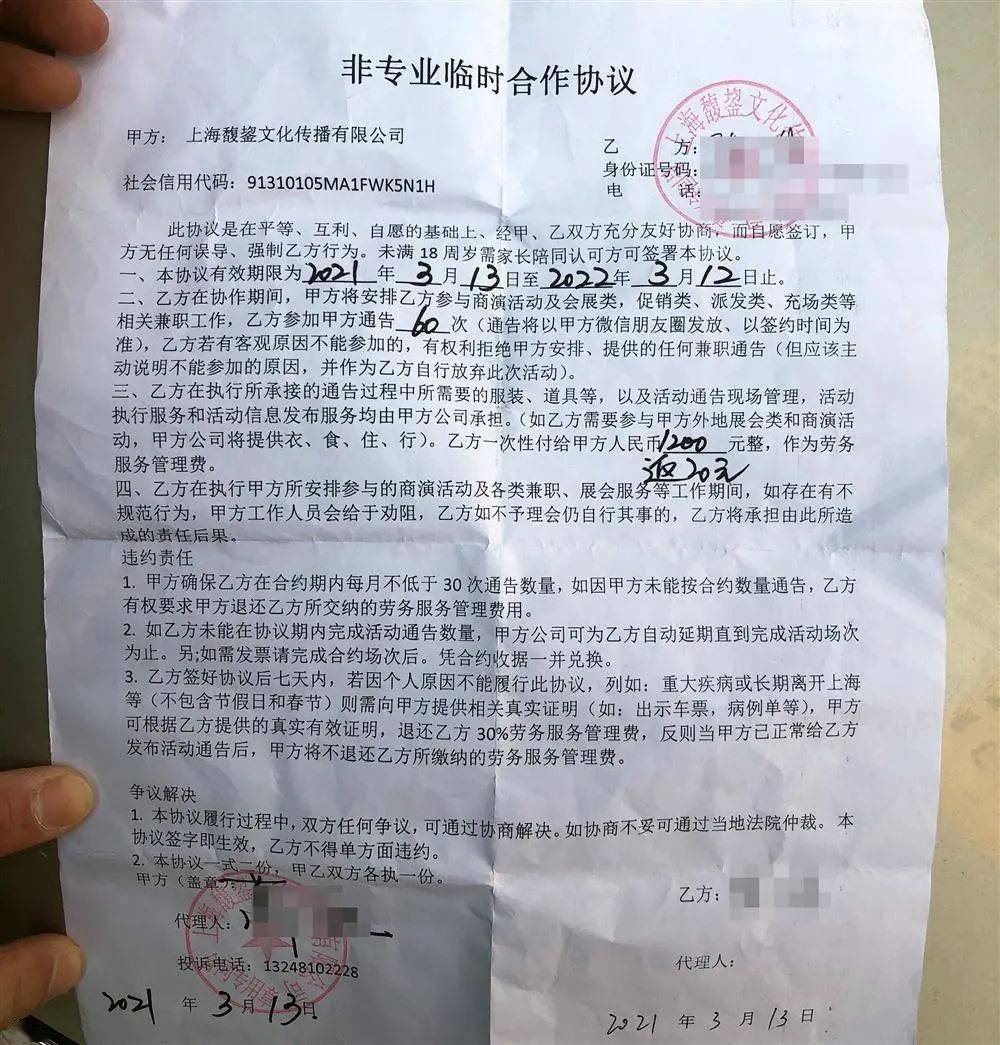 非专业临时合作协议
甲方： 上海馥鋆文化传播有限公司
乙 方：
身份证号码：
社会信用代码：91310105MA1FWK5N1H
电 话：
此协议是在平等、互利、自愿的基础上、经甲、乙双方充分友好协商，而自愿签订，甲
方无任何误导、强制乙方行为。未满 18 周岁需家长陪同认可方可签署本协议。
一、本协议有效期限为2021 年 3 月 13 日至 2022年 3 月 12 日止。
二、乙方在协作期间，甲方将安排乙方参与商演活动及会展类，促销类、派发类、充场类等
相关兼职工作，乙方参加甲方通告 60 次（通告将以甲方微信朋友圈发放、以签约时间为
准），乙方若有客观原因不能参加的，有权利拒绝甲方安排、提供的任何兼职通告（但应该主
动说明不能参加的原因，并作为乙方自行放弃此次活动）。
三、乙方在执行所承接的通告过程中所需要的服装、道具等，以及活动通告现场管理，活动
执行服务和活动信息发布服务均由甲方公司承担。（如乙方需要参与甲方外地展会类和商演活
动，甲方公司将提供衣、食、住、行）。乙方一次性付给甲方人民币1200 元整，作为劳务
服务管理费。
返20元
四、乙方在执行甲方所安排参与的商演活动及各类兼职、展会服务等工作期间，如存在有不
规范行为，甲方工作人员会给于劝阻，乙方如不予理会仍自行其事的，乙方将承担由此所造
成的责任后果。
违约责任
1. 甲方确保乙方在合约期内每月不低于 30 次通告数量，如因甲方未能按合约数量通告，乙方
有权要求甲方退还乙方所交纳的劳务服务管理费用。
2. 如乙方未能在协议期内完成活动通告数量，甲方公司可为乙方自动延期直到完成活动场次
为止。另;如需发票请完成合约场次后。凭合约收据一并兑换。
3. 乙方签好协议后七天内，若因个人原因不能履行此协议，列如：重大疾病或长期离开上海
等（不包含节假日和春节）则需向甲方提供相关真实证明（如：出示车票，病例单等），甲方
可根据乙方提供的真实有效证明，退还乙方 30%劳务服务管理费，反则当甲方已正常给乙方
发布活动通告后，甲方将不退还乙方所缴纳的劳务服务管理费。
争议解决
1. 本协议履行过程中，双方任何争议，可通过协商解决。如协商不妥可通过当地法院仲裁。 本
协议签字即生效，乙方不得单方面违约。
2. 本协议一式二份，甲乙双方各执一份。
甲方（盖章）：
乙方：
代理人：
代理人：
投诉电话：13248102228
2021 年 3 月 13 日
2021 年 3 月 13 日